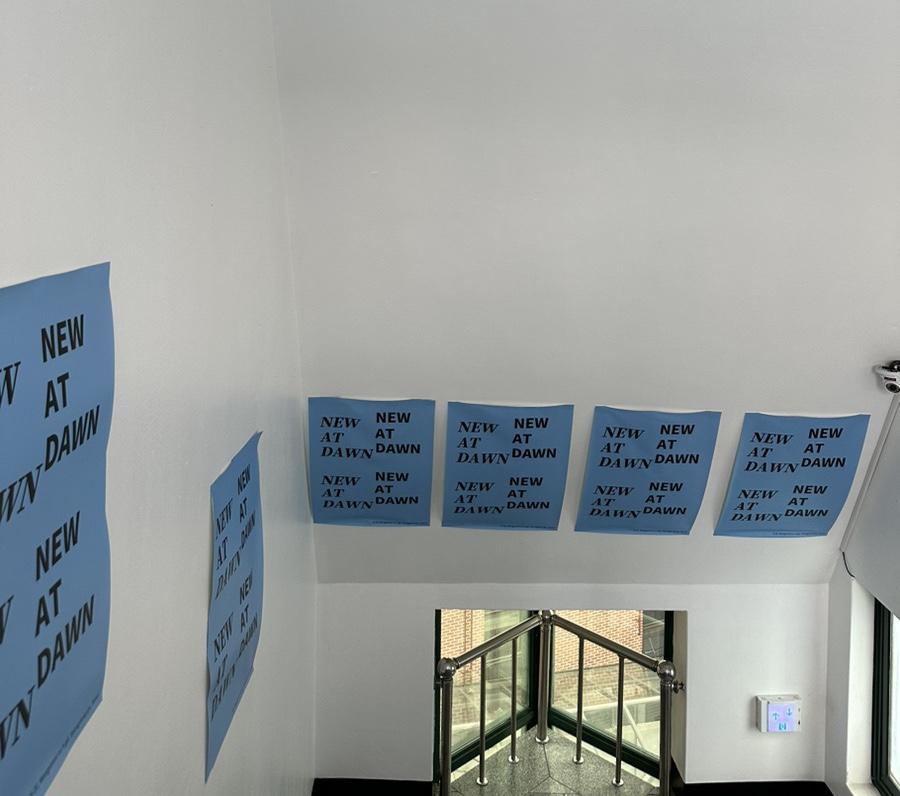 NEW
AT
DAWN
NEW
AT
DAWN
NEW NEW
AT AT
DAWN DAWN
NEW NEW
AT AT
DAWN DAWN
NEW NEW
AT AT
DAWN DAWN
NEW NEW
AT AT
DAWN DAWN
NEW NEW
AT AT
DAWN DAWN
NEW NEW
AT AT
DAWN DAWN
NEW NEW
AT AT
DAWN DAWN
NEW NEW
AT AT
DAWN DAWN
NEW NEW
AT AT
DAWN DAWN
NEW NEW
AT AT
DAWN DAWN